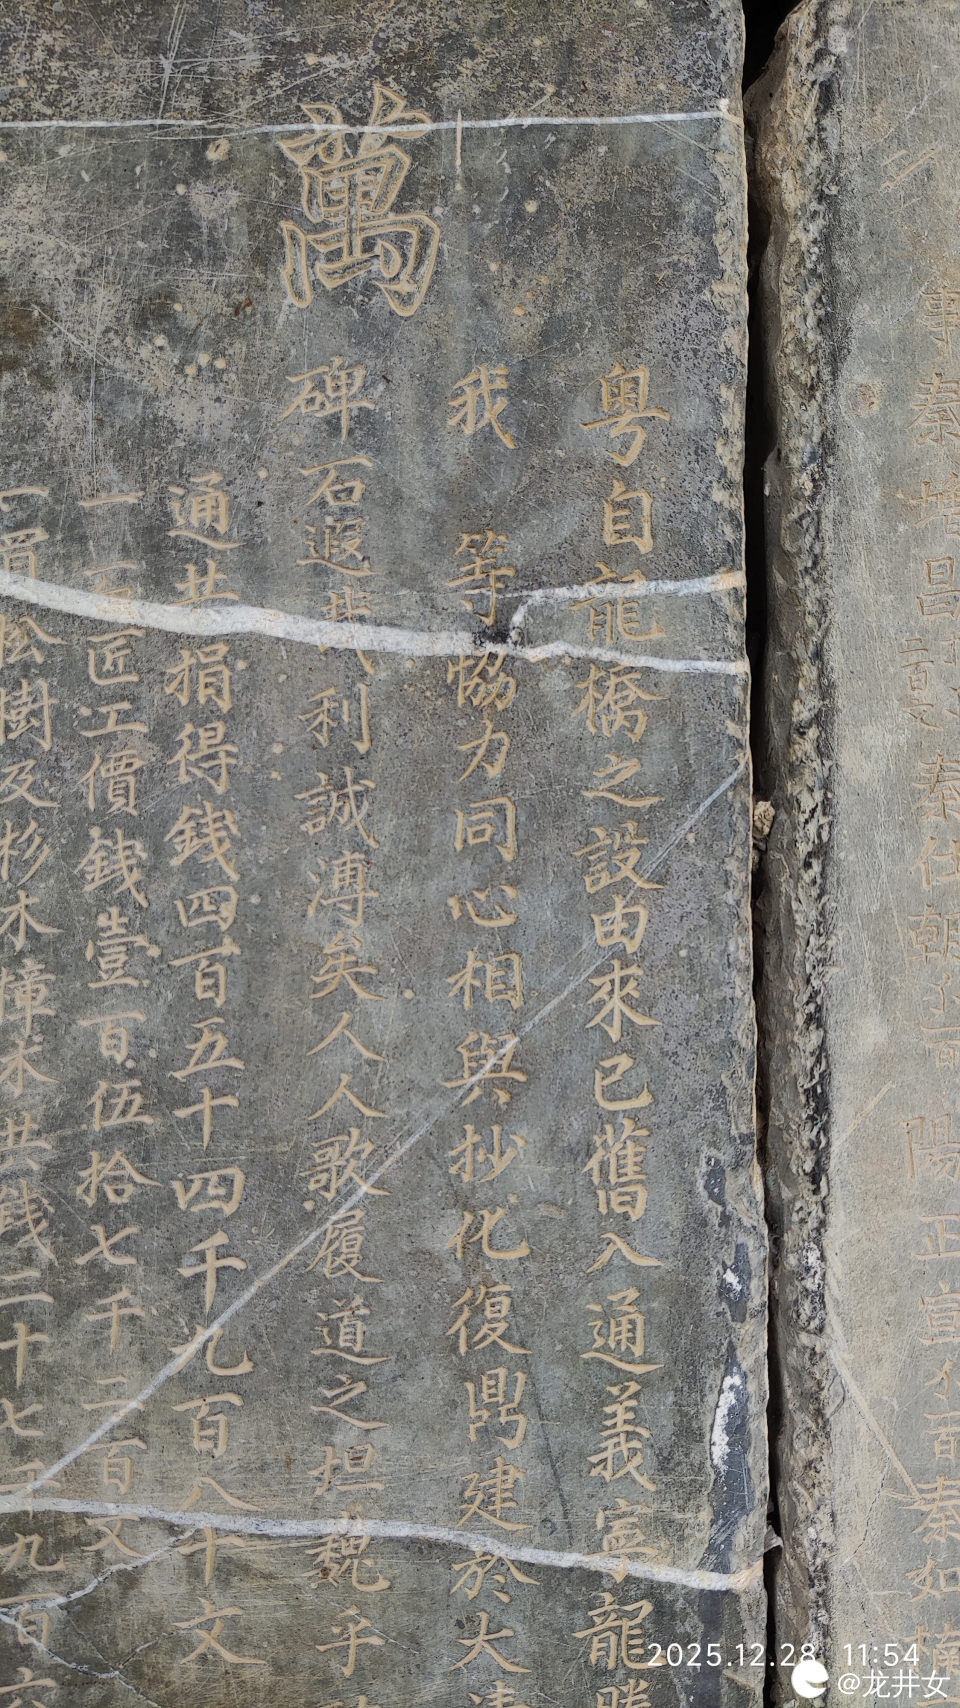 萬
粤自龍橋之設由來已舊入通義寧龍勝
我 等協力同心相與抄化復鼎建於大清
碑石遐我民利誠溥矣人人歌履道之坦巍乎
通共捐得錢四百五十四千九百八十文
一石匠工價錢壹百伍拾七千二百文
一買松樹及杉木樟木共錢二十七千九百六
秦 昌 秦仕朝 陽正宣 秦如
2025.12.28 11:54
@龙井女